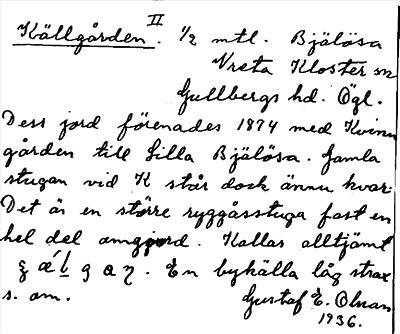 II
Källgården. 1/2 mtl. Bjälösa
Vreta Kloster sn
Gullbergs hd. Ögl.
Dess jord förenades 1874 med Kvinn
gården till Lilla Bjälösa. Gamla
stugan vid K står dock ännu kvar.
Det är en större ryggåsstuga fast en
hel del omgjord. Kallas alltjämt
En byhälla låg strax
s. om. Gustaf E. Olsson
1936.